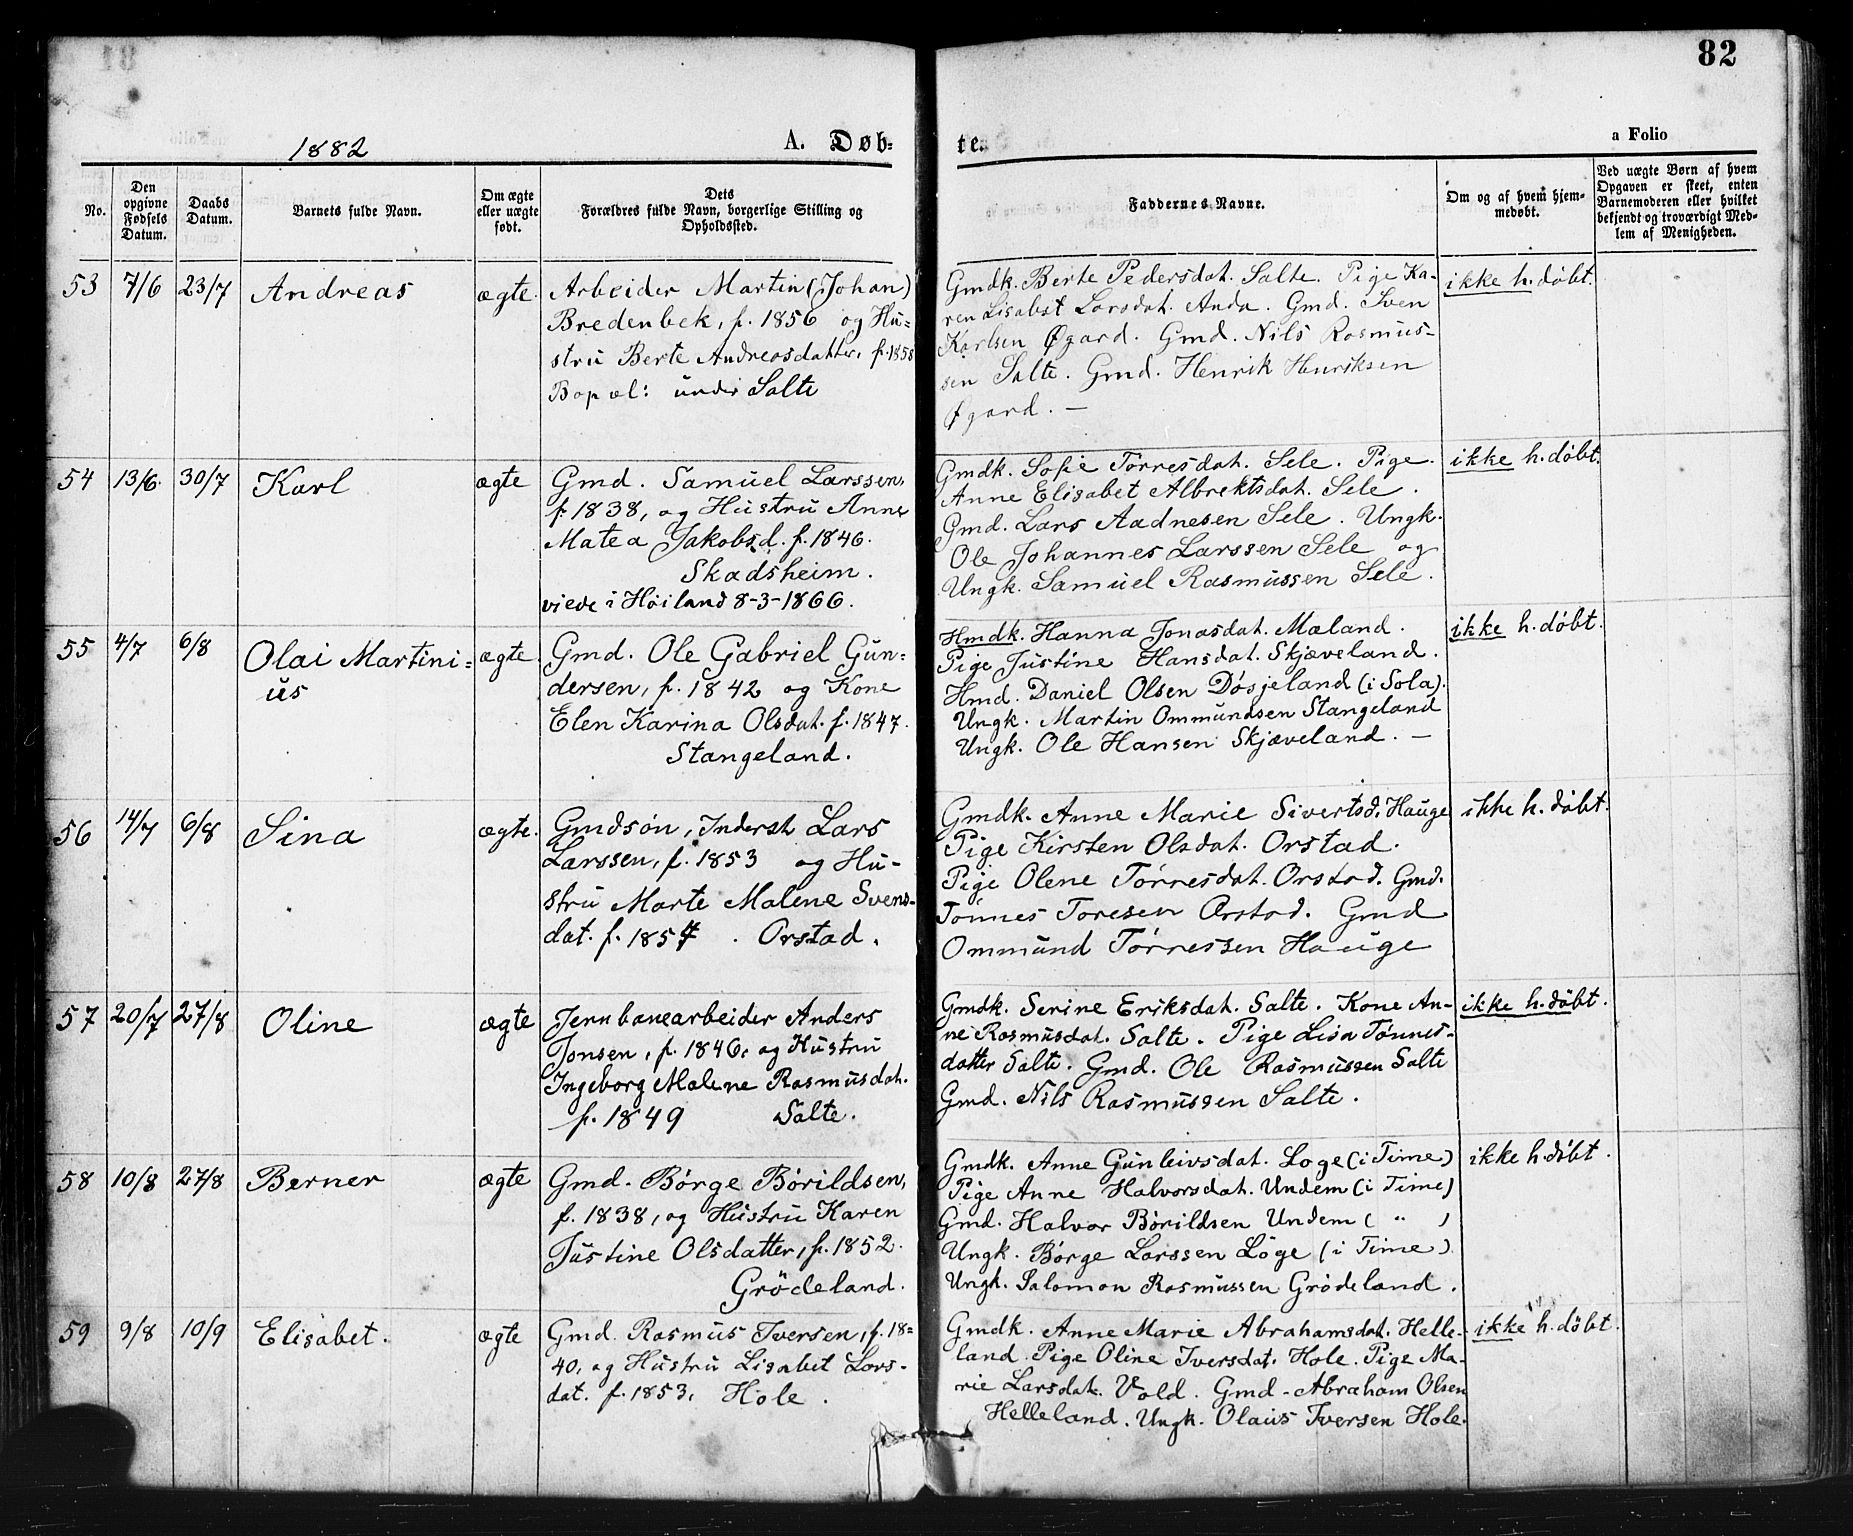 82
1882
A. Døb-
te.
a Folio
No.
Den opgivne Fødsels Datum.
Daabs Datum.
Barnets fulde Navn.
Om ægte eller uægte født.
Dets
Forældres fulde Navn, borgerlige Stilling og
Opholdssted.
Faddernes Navne.
Om og af hvem hjem-
medøbt.
Ved uægte Børn af hvem
Opgaven er skeet, enten
Barnemoderen eller hvilket
bekjendt og troværdigt Med-
lem af Menigheden.
53 7/6 23/7 Andreas ægte.
Arbeider Martin (Johan)
Bredenbek, f. 1856 og Hu-
stru Berte Andreasdatter, f. 1855
Bopæl: under Salte
Gmdk. Berte Pedersdat. Salte. Pige Ka-
ren Lisabet Larsdat. Anda. Gmd. Sven
Karlsen Øgard. Gmd. Nils Rasmus-
sen Salte. Gmd. Henrik Henriksen
Øgard. —
ikke h. døbt.
54 13/6. 30/7 Karl ægte
Gmd. Samuel Larssen,
f. 1838, og Hustru Anne
Matea Jakobsd. f. 1846.
Skadsheim.
viede i Høiland 8-3-1866.
Gmdk. Sofie Tørresdat. Sele. Pige
Anne Elisabet Albrektsdat. Sele.
Gmd. Lars Aadnesen Sele. Ungk.
Ole Johannes Larssen Sele og
Ungk. Samuel Rasmussen Sele.
ikke h. døbt.
55 4/7 6/8 Olai Martini-
us
ægte.
Gmd. Ole Gabriel Gun-
dersen, f. 1842 og Kone
Elen Karina Olsdat. f. 1847.
Stangeland.
Hmdk. Hanna Jonasdat. Mæland.
Pige Justine Hansdat. Skjæveland.
Hmd. Daniel Olsen Døsjeland (i Sola).
Ungk. Martin Ommundsen Stangeland
Ungk. Ole Hansen Skjæveland. —
ikke h. døbt.
56 14/7 6/8 Sina ægte.
Gmdsøn, Inderst Lars
Larssen, f. 1853 og Hu-
stru Marte Malene Svens-
dat. f. 1857. Orstad.
Gmdk. Anne Marie Sivertsd. Hauge
Pige Kirsten Olsdat. Orstad.
Pige Olene Tørresdat. Orstad. Gmd.
Tønnes Toresen Orstad. Gmd
Ommund Tørressen Hauge
ikke h. døbt.
57 20/7 27/8 Oline ægte
Jernbanearbeider Anders
Jonsen, f. 1846, og Hustru
Ingeborg Malene Rasmusdat.
f. 1849 Salte.
Gmdk. Serine Eriksdat. Salte. Kone An-
ne Rasmusdat. Salte. Pige Lisa Tønnes-
datter Salte. Gmd. Ole Rasmussen Salte
Gmd. Nils Rasmussen Salte.
ikke h. døbt.
58 10/8 27/8 Berner ægte
Gmd. Børge Børildsen,
f. 1838, og Hustru Karen
Justine Olsdatter, f. 1852.
Grødeland.
Gmdk. Anne Gunleivsdat. Løge (i Time)
Pige Anne Halvorsdat. Undem (i Time)
Gmd. Halvor Børildsen Undem ( " )
Ungk. Børge Larssen Løge (i Time).
Ungk. Salomon Rasmussen Grødeland.
ikke h. døbt.
59 9/8 10/9 Elisabet. ægte
Gmd. Rasmus Iversen, f. 18-
40, og Hustru Lisabet Lars-
dat. f. 1853. Hole.
Gmdk. Anne Marie Abrahamsdat. Helle-
land. Pige Oline Iversdat. Hole. Pige Ma-
rie Larsdat. Vold. Gmd. Abraham Olsen
Helleland. Ungk. Olaus Iversen Hole.
ikke h. døbt.